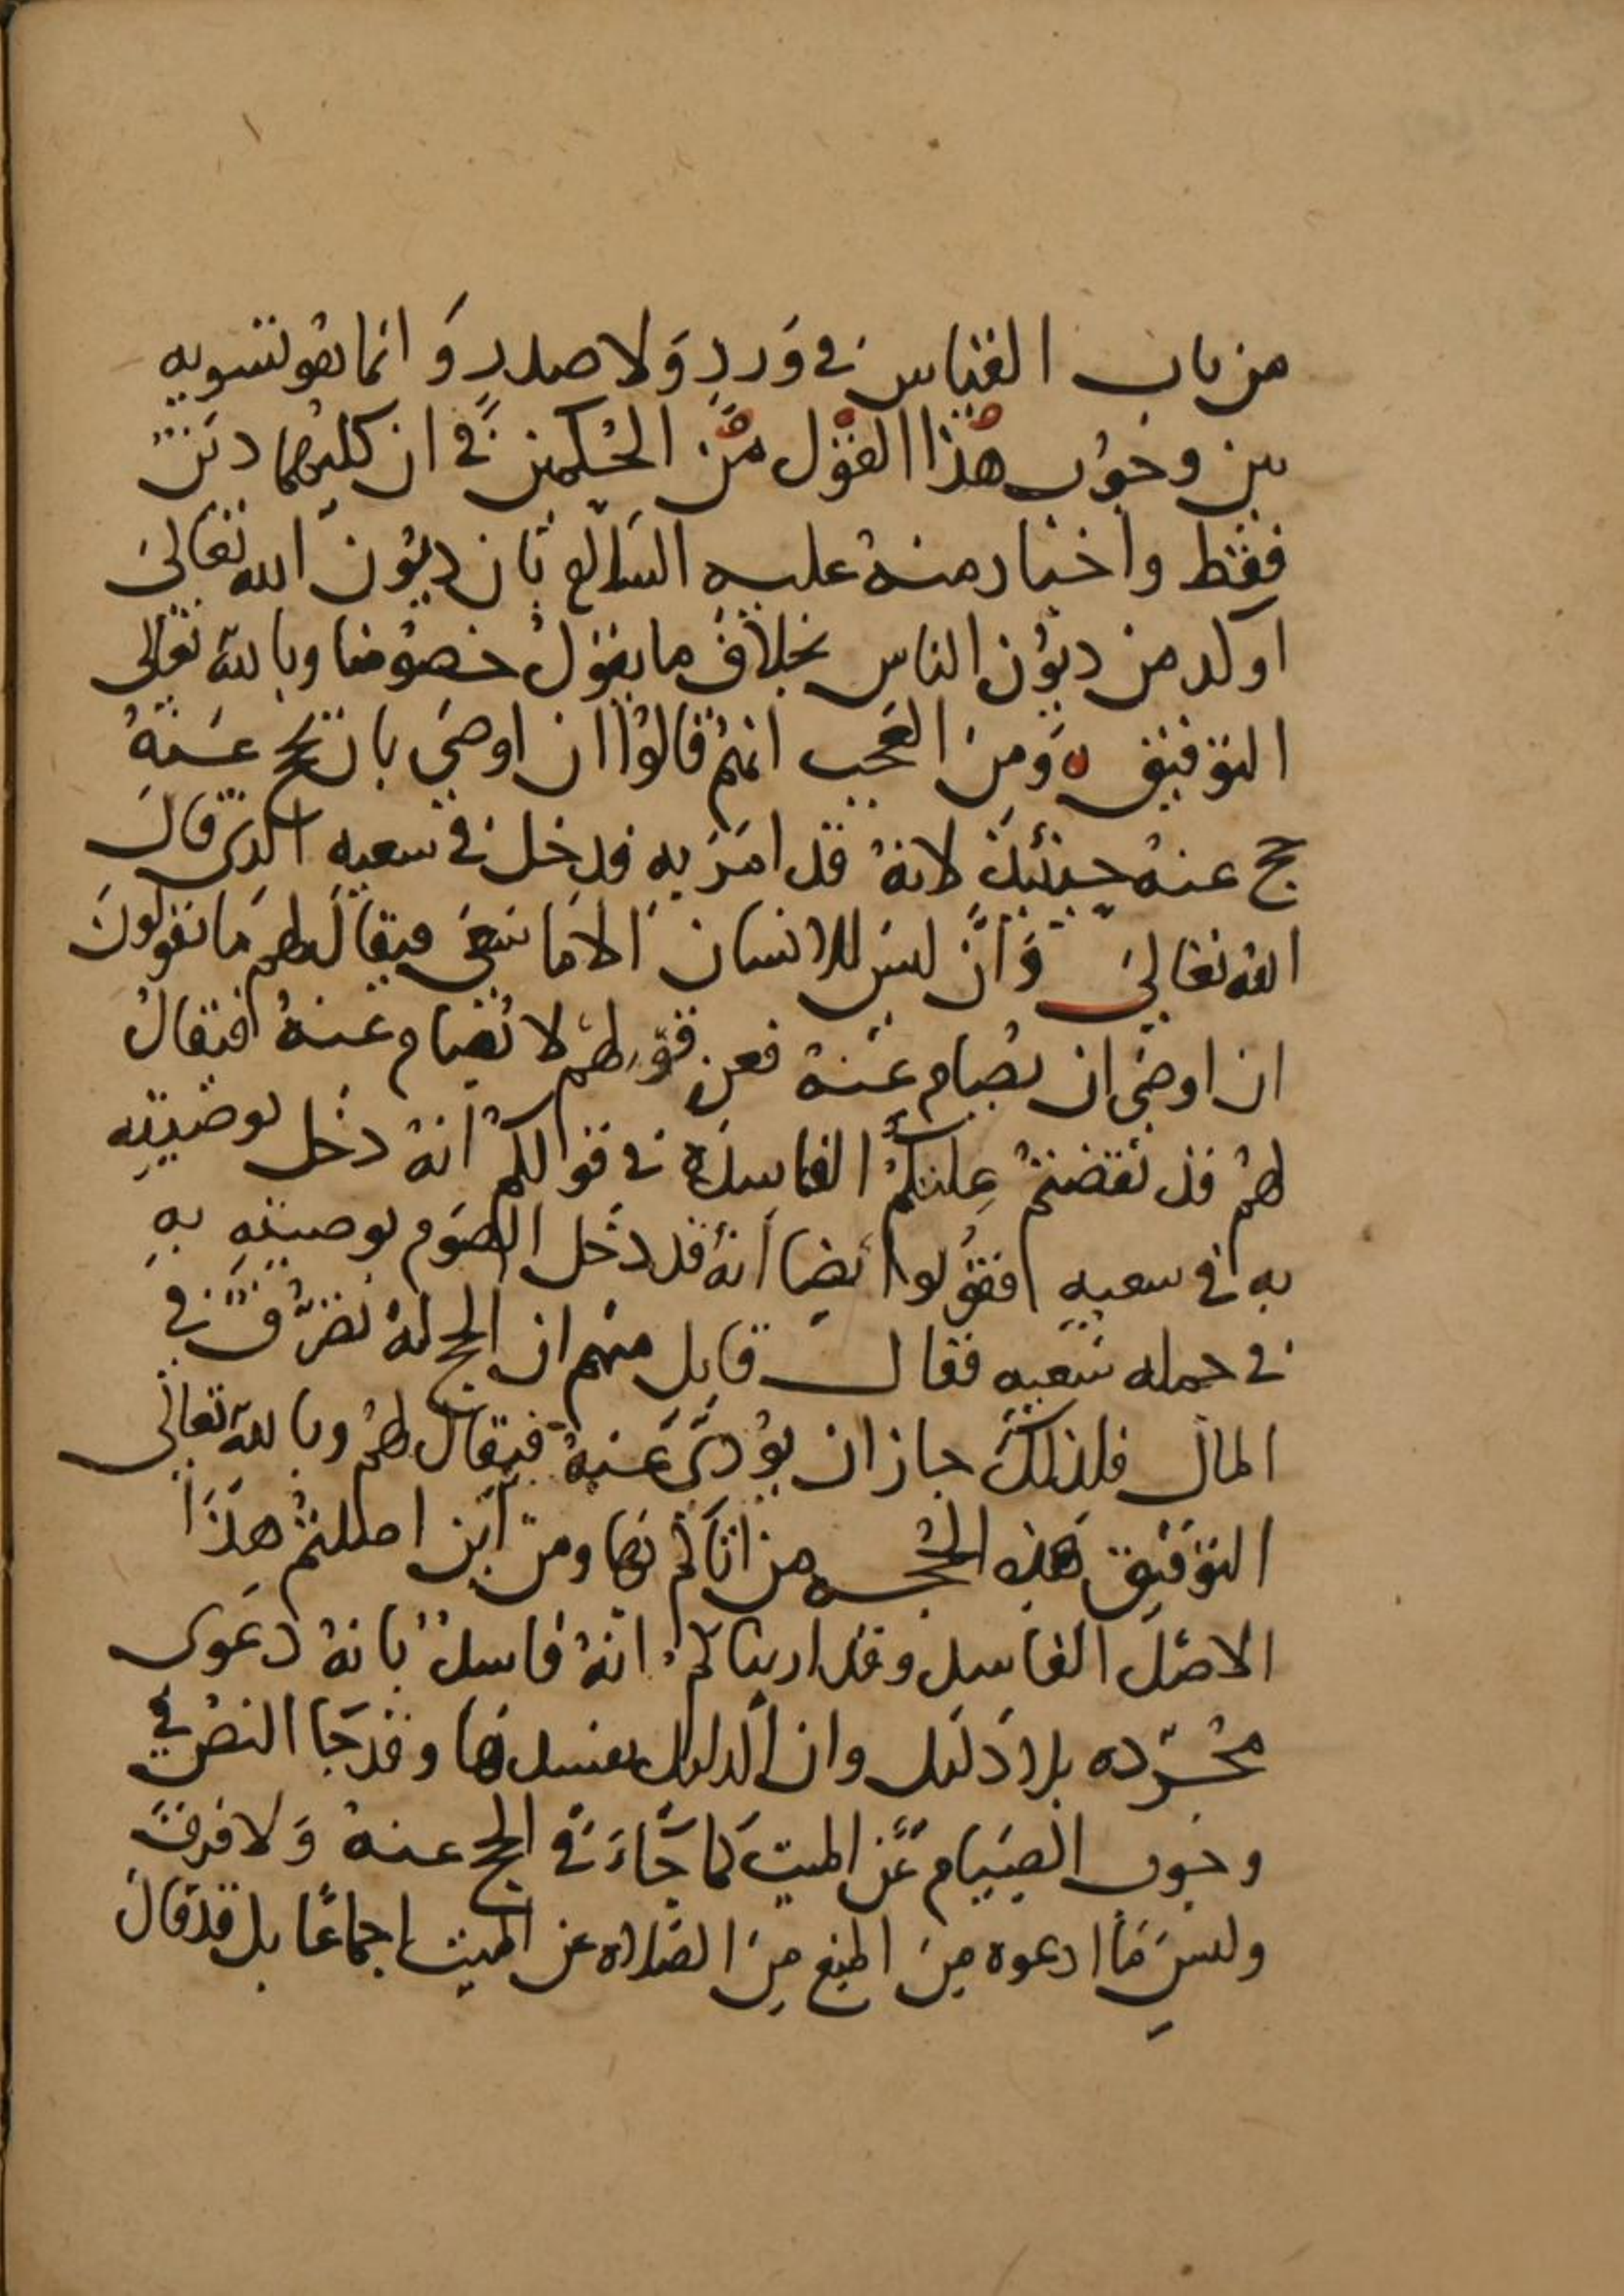 من باب القياس في وَردٍ وَلا صدرٍ وَانما هو تسويه
بين وجوب هذا القول من الحُكمين في ان كليهما دين
فقط واخبار منهُ عليه السلام بان ديون الله تعالى
اوكد من ديُون الناس بخلاف ما يقول خصُومنا وبالله تعالى
التوفيق ه وَمِن العَجب انهُم قالوا ان اوصَى بان يحج عَنهُ
حج عنهُ حِينئذٍ لانهُ قد امَرَ بهِ فدخل في سعيهِ الذي قال
الله تعالى وَأن ليسَ للانسان الا ما سَعَى فيقالُ لهم مَا تقولونَ
ان اوصى ان يُصام عَنهُ فمن قولهُم لا يُصام عنهُ فيقالُ
لهُم قد نقضتمُ عِلتكمُ الفاسدَه في قولكمُ انهُ دخل بوصيتِه
به في سعيهِ فقولوا ايضا انهُ قد دخل الصَوم بوصيتهِ بهِ
في جمله سَعيه فقال قايل منهم ان الحج لهُ تصرُّفٌ في
المال فلذلك جاز ان يُؤدى عَنهُ فيقال لهُم وبالله تعالى
التوفيق هَذِه الحُجه من اتاكم بها ومن اين اصلتم هذا
الاصل الفاسد وقد اريناكم انهُ فاسدٌ بانهُ دَعوى
مُجرّده بلا دَليل وان الدليل يفسدها وقد جَا النصُ في
وجُوب الصِيام عَن الميت كما جَاءَ في الحج عنهُ وَلا فرق
وليسَ مَا ادعوه مِن المنع مِنَ الصلاه عن الميت اجماعًا بل قد قال